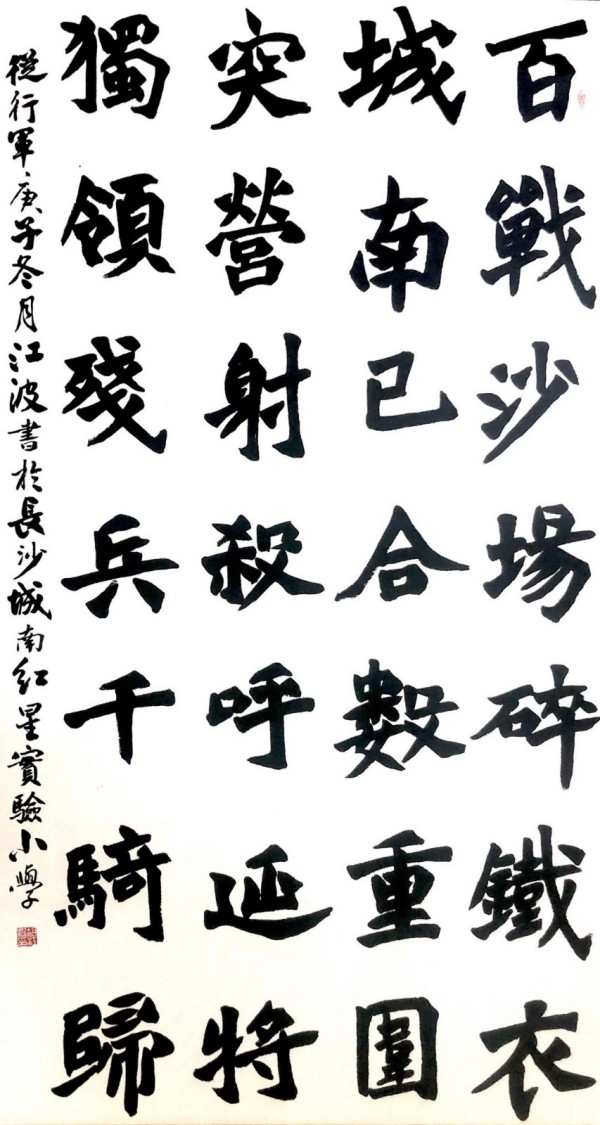 百戰沙場碎鐵衣
城南已合數重圍
突營射殺呼延將
獨領殘兵千騎歸
從行軍庚子冬月江波書於長沙城南紅星實驗小學